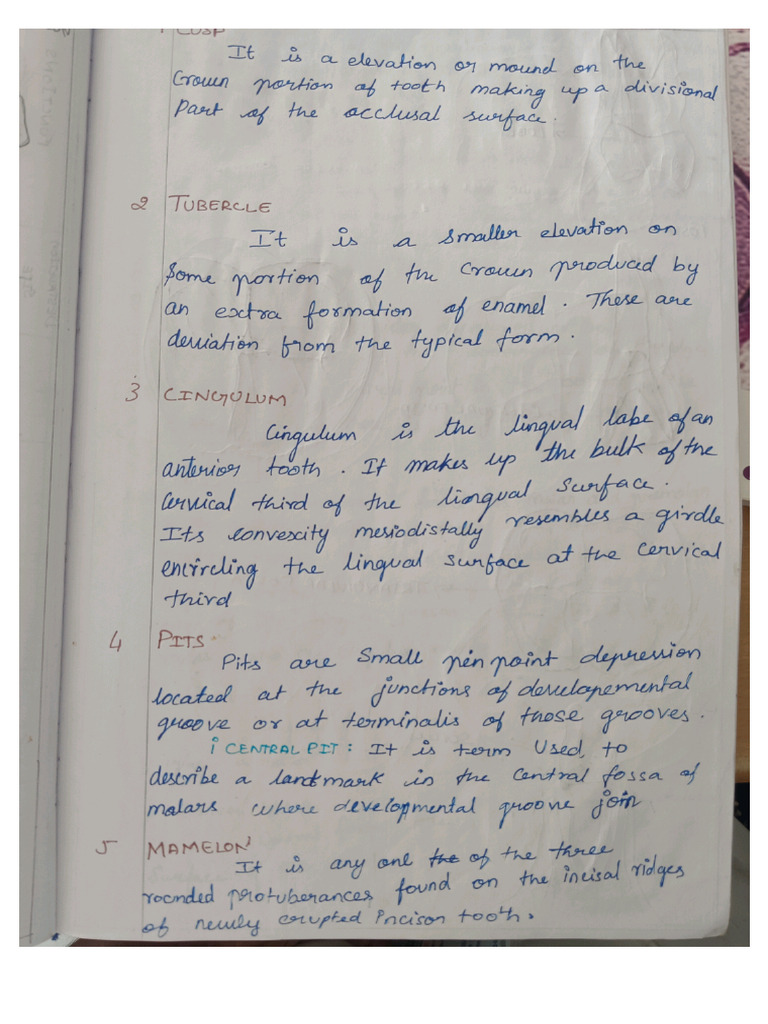 1 CUSP
It is a elevation or mound on the
Crown portion of tooth making up a divisional
Part of the occlusal surface.
2 TUBERCLE
It is a smaller elevation on
Some portion of the crown produced by
an extra formation of enamel. These are
deviation from the typical form.
3 CINGULUM
Cingulum is the lingual lobe of an
anterior tooth. It makes up the bulk of the
Cervical third of the lingual surface.
Its convexity mesiodistally resembles a girdle
encircling the lingual surface at the cervical
third
4 PITS
Pits are Small pin point depression
located at the junctions of developemental
groove or at terminalis of those grooves.
i CENTRAL PIT: It is term Used, to
describe a landmark in the Central fossa of
molars where developmental groove join
5 MAMELON
It is any one the of the three
rounded protuberances found on the incisal ridges
of newly erupted incison tooth.